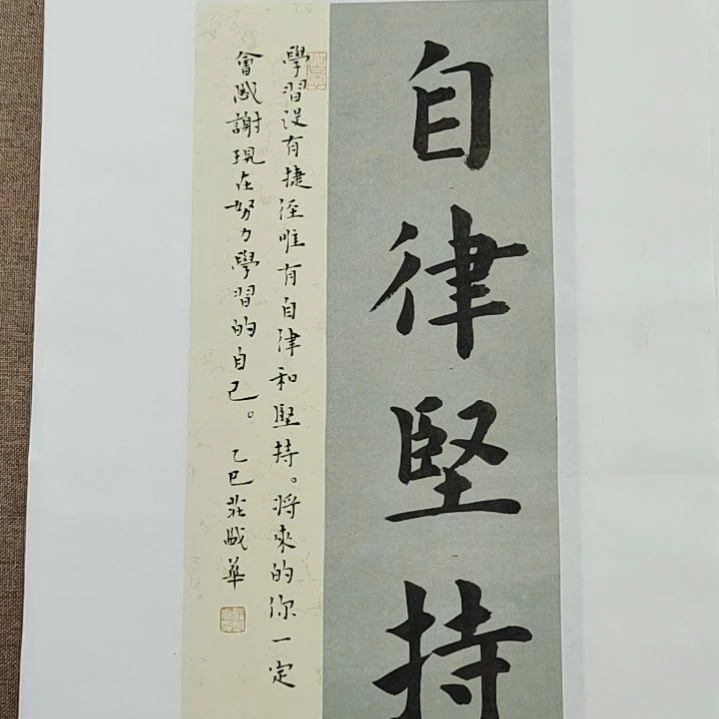 自律堅持
學習没有捷徑唯有自律和堅持。将來的你一定
會感謝現在努力學習的自己。乙巳莊晟華